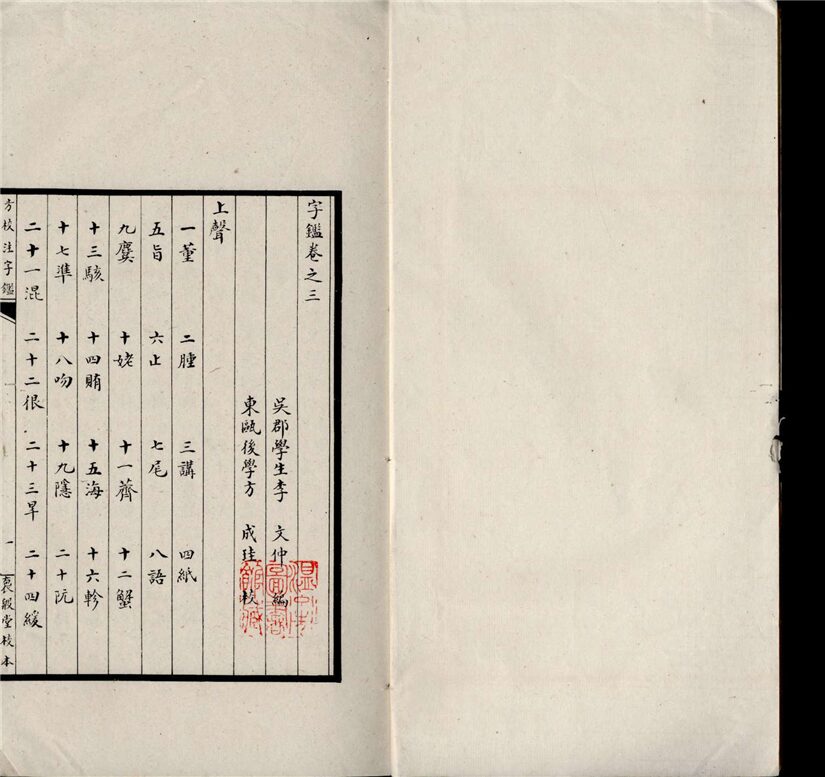 字鑑卷之三
吳郡學生李 文仲 編
東甌後學方 成珪 校
上聲
一董 二腫 三講 四紙
五旨 六止 七尾 八語
九麌 十姥 十一薺 十二蟹
十三駭 十四賄 十五海 十六軫
十七準 十八吻 十九隱 二十阮
二十一混 二十二很 二十三旱 二十四緩
方校注字鑑
一
裦殷堂校本